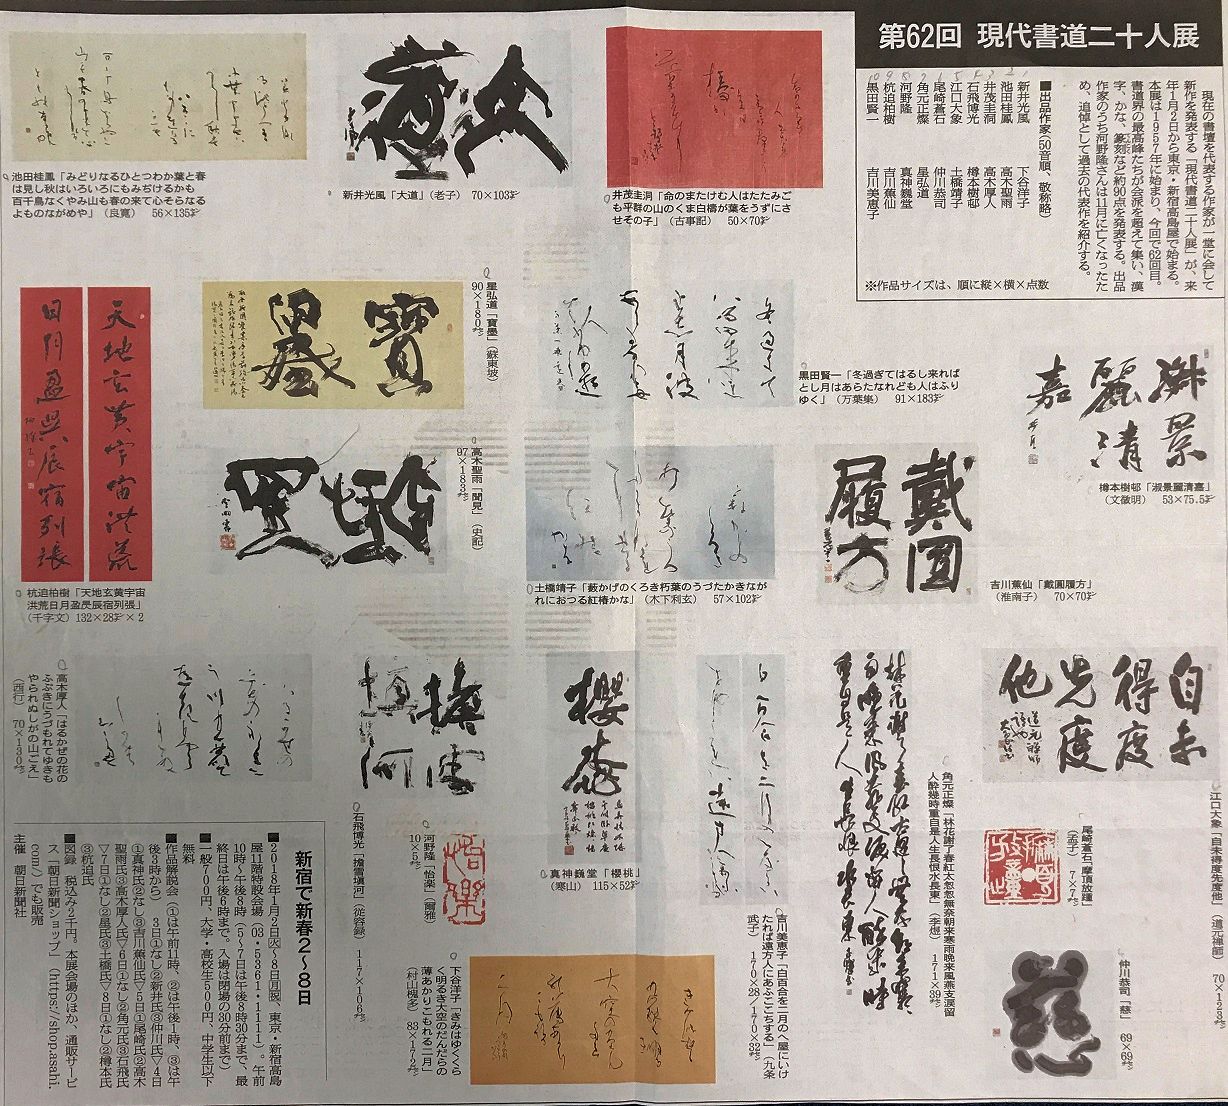 第62回 現代書道二十人展
現在の書壇を代表する作家が一堂に会して
新作を発表する「現代書道二十人展」が、来
年1月2日から東京・新宿高島屋で始まる。
本展は1957年に始まり、今回で62回目。
書道界の最高峰たちが会派を超えて集い、漢
字、かな、篆刻など約90点を発表する。出品
作家のうち河野隆さんは11月に亡くなったた
め、追悼として過去の代表作を紹介する。
■出品作家(50音順、敬称略)
新井光風 下谷洋子
池田桂鳳 高木聖雨
井茂圭洞 高木厚人
石飛博光 樽本樹邨
江口大象 土橋靖子
尾崎蒼石 仲川恭司
角元正燦 星弘道
河野隆 真神巍堂
杭迫柏樹 吉川蕉仙
黒田賢一 吉川美恵子
※作品サイズは、順に縦×横×点数
井茂圭洞「命のまたけむ人はたたみご
も平群の山のくま白檮が葉をうずにさ
せその子」(古事記) 50×70㌢
新井光風「大道」(老子) 70×103㌢
池田桂鳳「みどりなるひとつわか葉と春
は見し秋はいろいろにもみぢけるかも
百千鳥なくやみ山も春の来て心そらなる
よものながめや」(良寛) 56×135㌢
樽本樹邨「淑景麗清嘉」
(文徴明) 53×75.5㌢
淑景
麗清
嘉
黒田賢一「冬過ぎてはるし来れば
とし月はあらたなれども人はふり
ゆく」(万葉集) 91×183㌢
星弘道「寶墨」(蘇東坡)
90×180㌢
寶墨
天地玄黄宇宙洪荒
日月盈昃辰宿列張
杭迫柏樹「天地玄黄宇宙
洪荒日月盈昃辰宿列張」
(千字文) 132×28㌢×2
戴圓
履方
吉川蕉仙「戴圓履方」
(淮南子) 70×70㌢
土橋靖子「藪かげのくろき朽葉のうづたかきなが
れにおつる紅椿かな」(木下利玄) 57×102㌢
高木聖雨「聞見」(史記)
97×183㌢
自未
得度
先度
他
江口大象「自未得度先度他」(道元禅師) 70×123㌢
尾崎蒼石「摩頂放踵」
(孟子) 7×7㌢
仲川恭司「慈」 69×69㌢
角元正燦「林花謝了春紅太怱怱無奈朝来寒雨晩来風臙支涙留
人酔幾時重自是人生長恨水長東」(李煜) 171×39㌢
吉川美恵子「白百合を二月のへ屋にいけ
たれば遠方人にあふここちする」(九条
武子)
櫻桃
真神巍堂「櫻桃」
(寒山) 115×52㌢
河野隆「怡楽」(爾雅)
10×5㌢
下谷洋子「きみはゆくくら
く明るき大空のだんだらの
薄あかりこもれる二月」
(村山槐多) 83×172㌢
石飛博光「擔雪塡河」(従容録) 117×106㌢
高木厚人「はるかぜの花の
ふぶきにうづもれてゆきも
やられぬしがの山ごえ」
(西行) 70×130㌢
新宿で新春2〜8日
■2018年1月2日㊋〜8日㊊㊗、東京・新宿高島
屋11階特設会場(03・5361・1111)。午前
10時〜午後8時(5〜7日は午後8時30分まで、最
終日は午後6時まで。入場は閉場の30分前まで)
■一般700円、大学・高校生500円、中学生以下
無料
■作品解説会(①は午前11時、②は午後1時、③は午
後3時から) 3日①なし②新井氏③仲川氏▽4日
①真神氏②なし③吉川蕉仙氏▽5日①尾崎氏②高木
聖雨氏③高木厚人氏▽6日①なし②角元氏③石飛氏
▽7日①なし②星氏③土橋氏▽8日①なし②樽本氏
③杭迫氏
■図録 税込み2千円。本展会場のほか、通販サービ
ス「朝日新聞ショップ」(https://shop.asahi.
com/)でも販売
主催 朝日新聞社